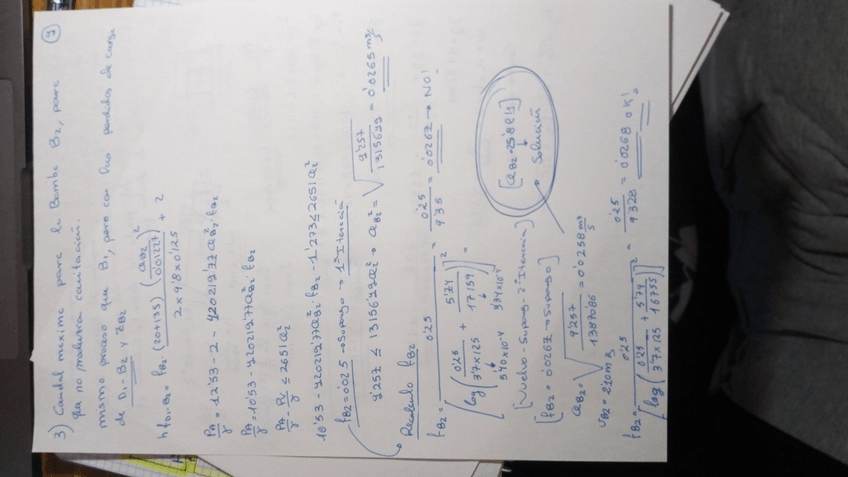 7
3) Caudal máximo para la Bomba B2, para
que no produzca cavitación.
mismo proceso que B1, pero con las perdidas de carga
de D1-B2 y ZB2
hf D1-B2 = fB2 · (20+135) (QB2/0'01227)² / 2×9'8×0'125 + 2
PA/γ = 12'53 - 2 - 420212'77QB2²·fB2
PA/γ = 10'53 - 420212'77QB2²·fB2
PA/γ - PV/γ ≤ 2651Q2²
10'53 - 420212'77QB2²·fB2 - 1'273 ≤ 2651Q2²
fB2 = 0'025 → Supongo → 1ª Iteración
9'257 ≤ 13156'99Q2² → QB2² = √(9'257/13156'99) = 0'0265 m³/s
Recalculo fB2
fB2 = 0'25 / [log(0'25/3'7×125 + 5'74/17159)]² = 0'25/9'35 = 0'0267 → NO!
5'40×10⁻⁴ 3'34×10⁻⁴
[Vuelvo-Supongo-2ª Iteración]
[fB2 = 0'0267 → Supongo]
QB2 = √(9'257/13870'86) = 0'0258 m³/s
[QB2 = 25'8 l/s]
↓
Solución
vB2 = 2'10 m/s
fB2 = 0'25 / [log(0'25/3'7×125 + 5'74/16755)]² = 0'25/9'328 = 0'0268 OK!